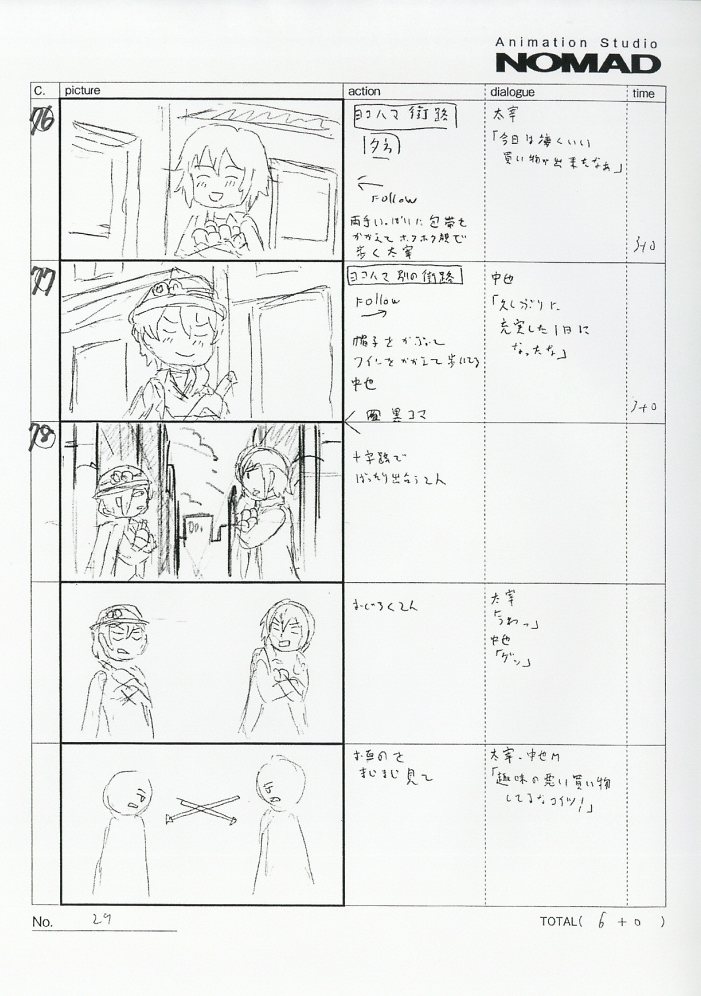 Animation Studio
NOMAD
C.
picture
action
dialogue
time
76
ヨコハマ 街路
夕方
Follow
両手いっぱいに包帯を
かかえてホクホク顔で
歩く太宰
太宰
「今日は凄くいい
買い物が出来たなぁ」
3+0
77
ヨコハマ 別の街路
Follow
帽子をかぶって
ワインをかかえて歩いてる
中也
中也
「久しぶりに
充実した1日に
なったな」
3+0
黒コマ
78
十字路で
ばったり出会う二人
おどろく二人
太宰
「うわっ」
中也
「ゲッ」
お互のを
まじまじ見て
太宰・中也M
「趣味の悪い買い物
してるなコイツ!」
No. 29
TOTAL( 6 + 0 )